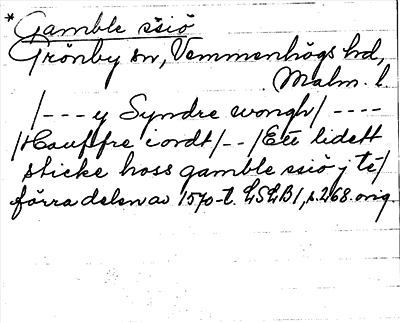 *Gamble ssiö
Grönby sn, Vemmenhögs hd,
Malm. l.
/---y Syndre wongh/----
/Hauffre iordt/--/Ett lidett
sticke hoss gamble ssiö j te/
förra delen av 1570-t. LSLB1, s. 268. orig.